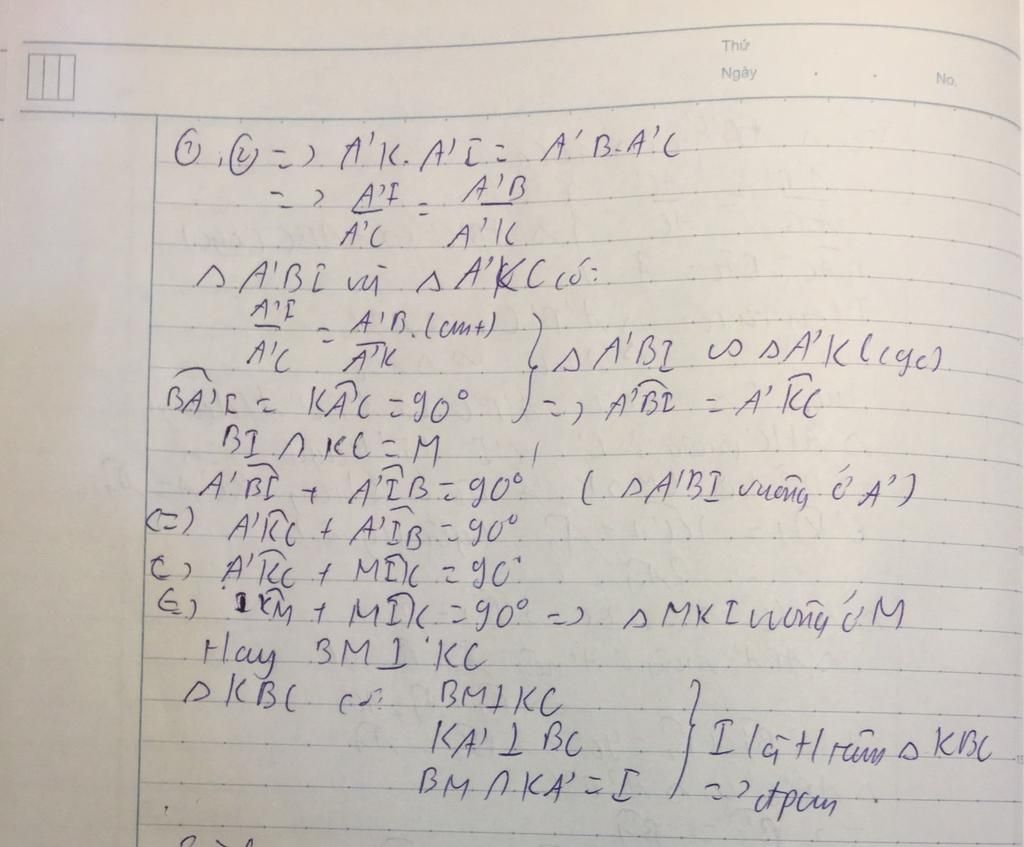 Thứ
Ngày . . No.
①, ② => A'K. A'I = A'B.A'C
=> A'I/A'C = A'B/A'K
Δ A'BI và Δ A'KC có:
A'I/A'C = A'B/A'K (cmt) } Δ A'BI ∽ Δ A'K(cgc)
BA'I = KA'C = 90° => A'BI = A'KC
BI ∩ KC = M
A'BI + A'IB = 90° (ΔA'BI vuông ở A')
(=) A'KC + A'IB = 90°
(=) A'KC + MIK = 90°
(=) IKM + MIK = 90° => Δ MKI vuông ở M
Hay BM ⊥ KC
Δ KBC có: BM ⊥ KC
KA' ⊥ BC } I là H tâm Δ KBC
BM ∩ KA' = I => đpcm